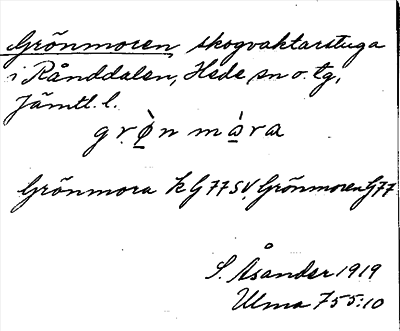 Grönmoren, skogvaktarstuga
i Rånddalen, Hede sn o. tg,
Jämtl. l.
grø̀n mȧ̀ra
Grönmora k G77SV, Grönmoren G77
S. Åsander 1919
Ulma 755:10